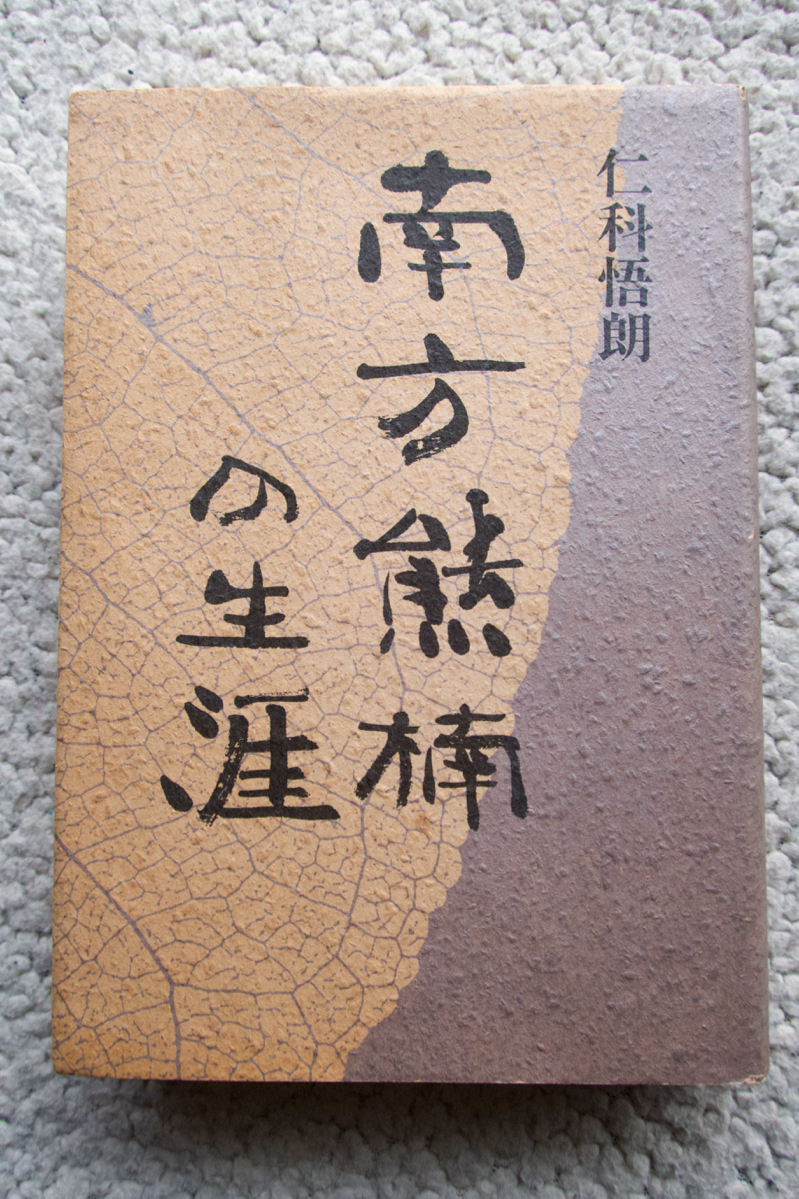 仁科悟朗
南方熊楠
の生涯